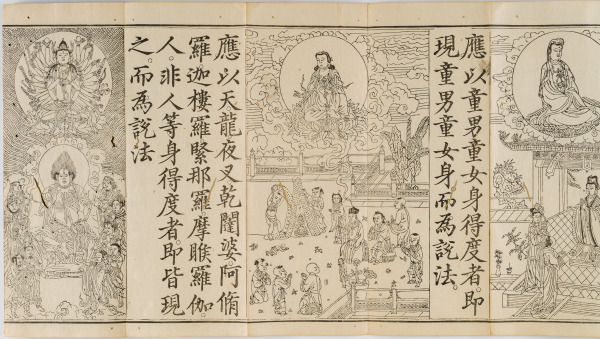 應以童男童女身得度者。即
現童男童女身而為說法。
應以天龍夜叉乾闥婆阿脩
羅迦樓羅緊那羅摩睺羅伽。
人。非人等身得度者。即皆現
之。而為說法